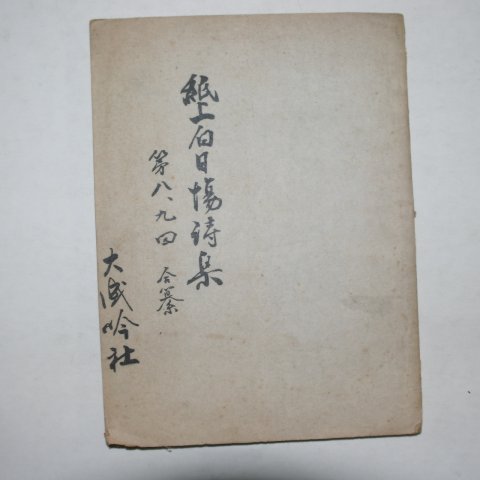 紙上白日場詩集
第八、九回 合纂
大成吟社